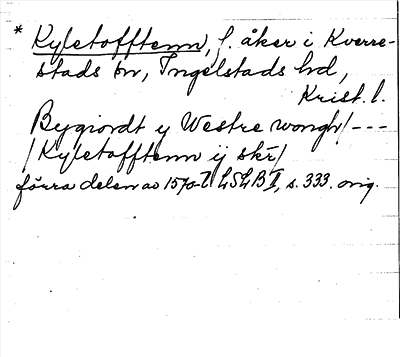 * Kyletofftenn, f. åker i Kverre-
stads sn, Ingelstads hd,
Krist. l.
Bygiordt y Westre wongh/ ---
/Kyletofftenn ij skr/
förra delen av 1570-t. LSLB II, s. 333. orig.